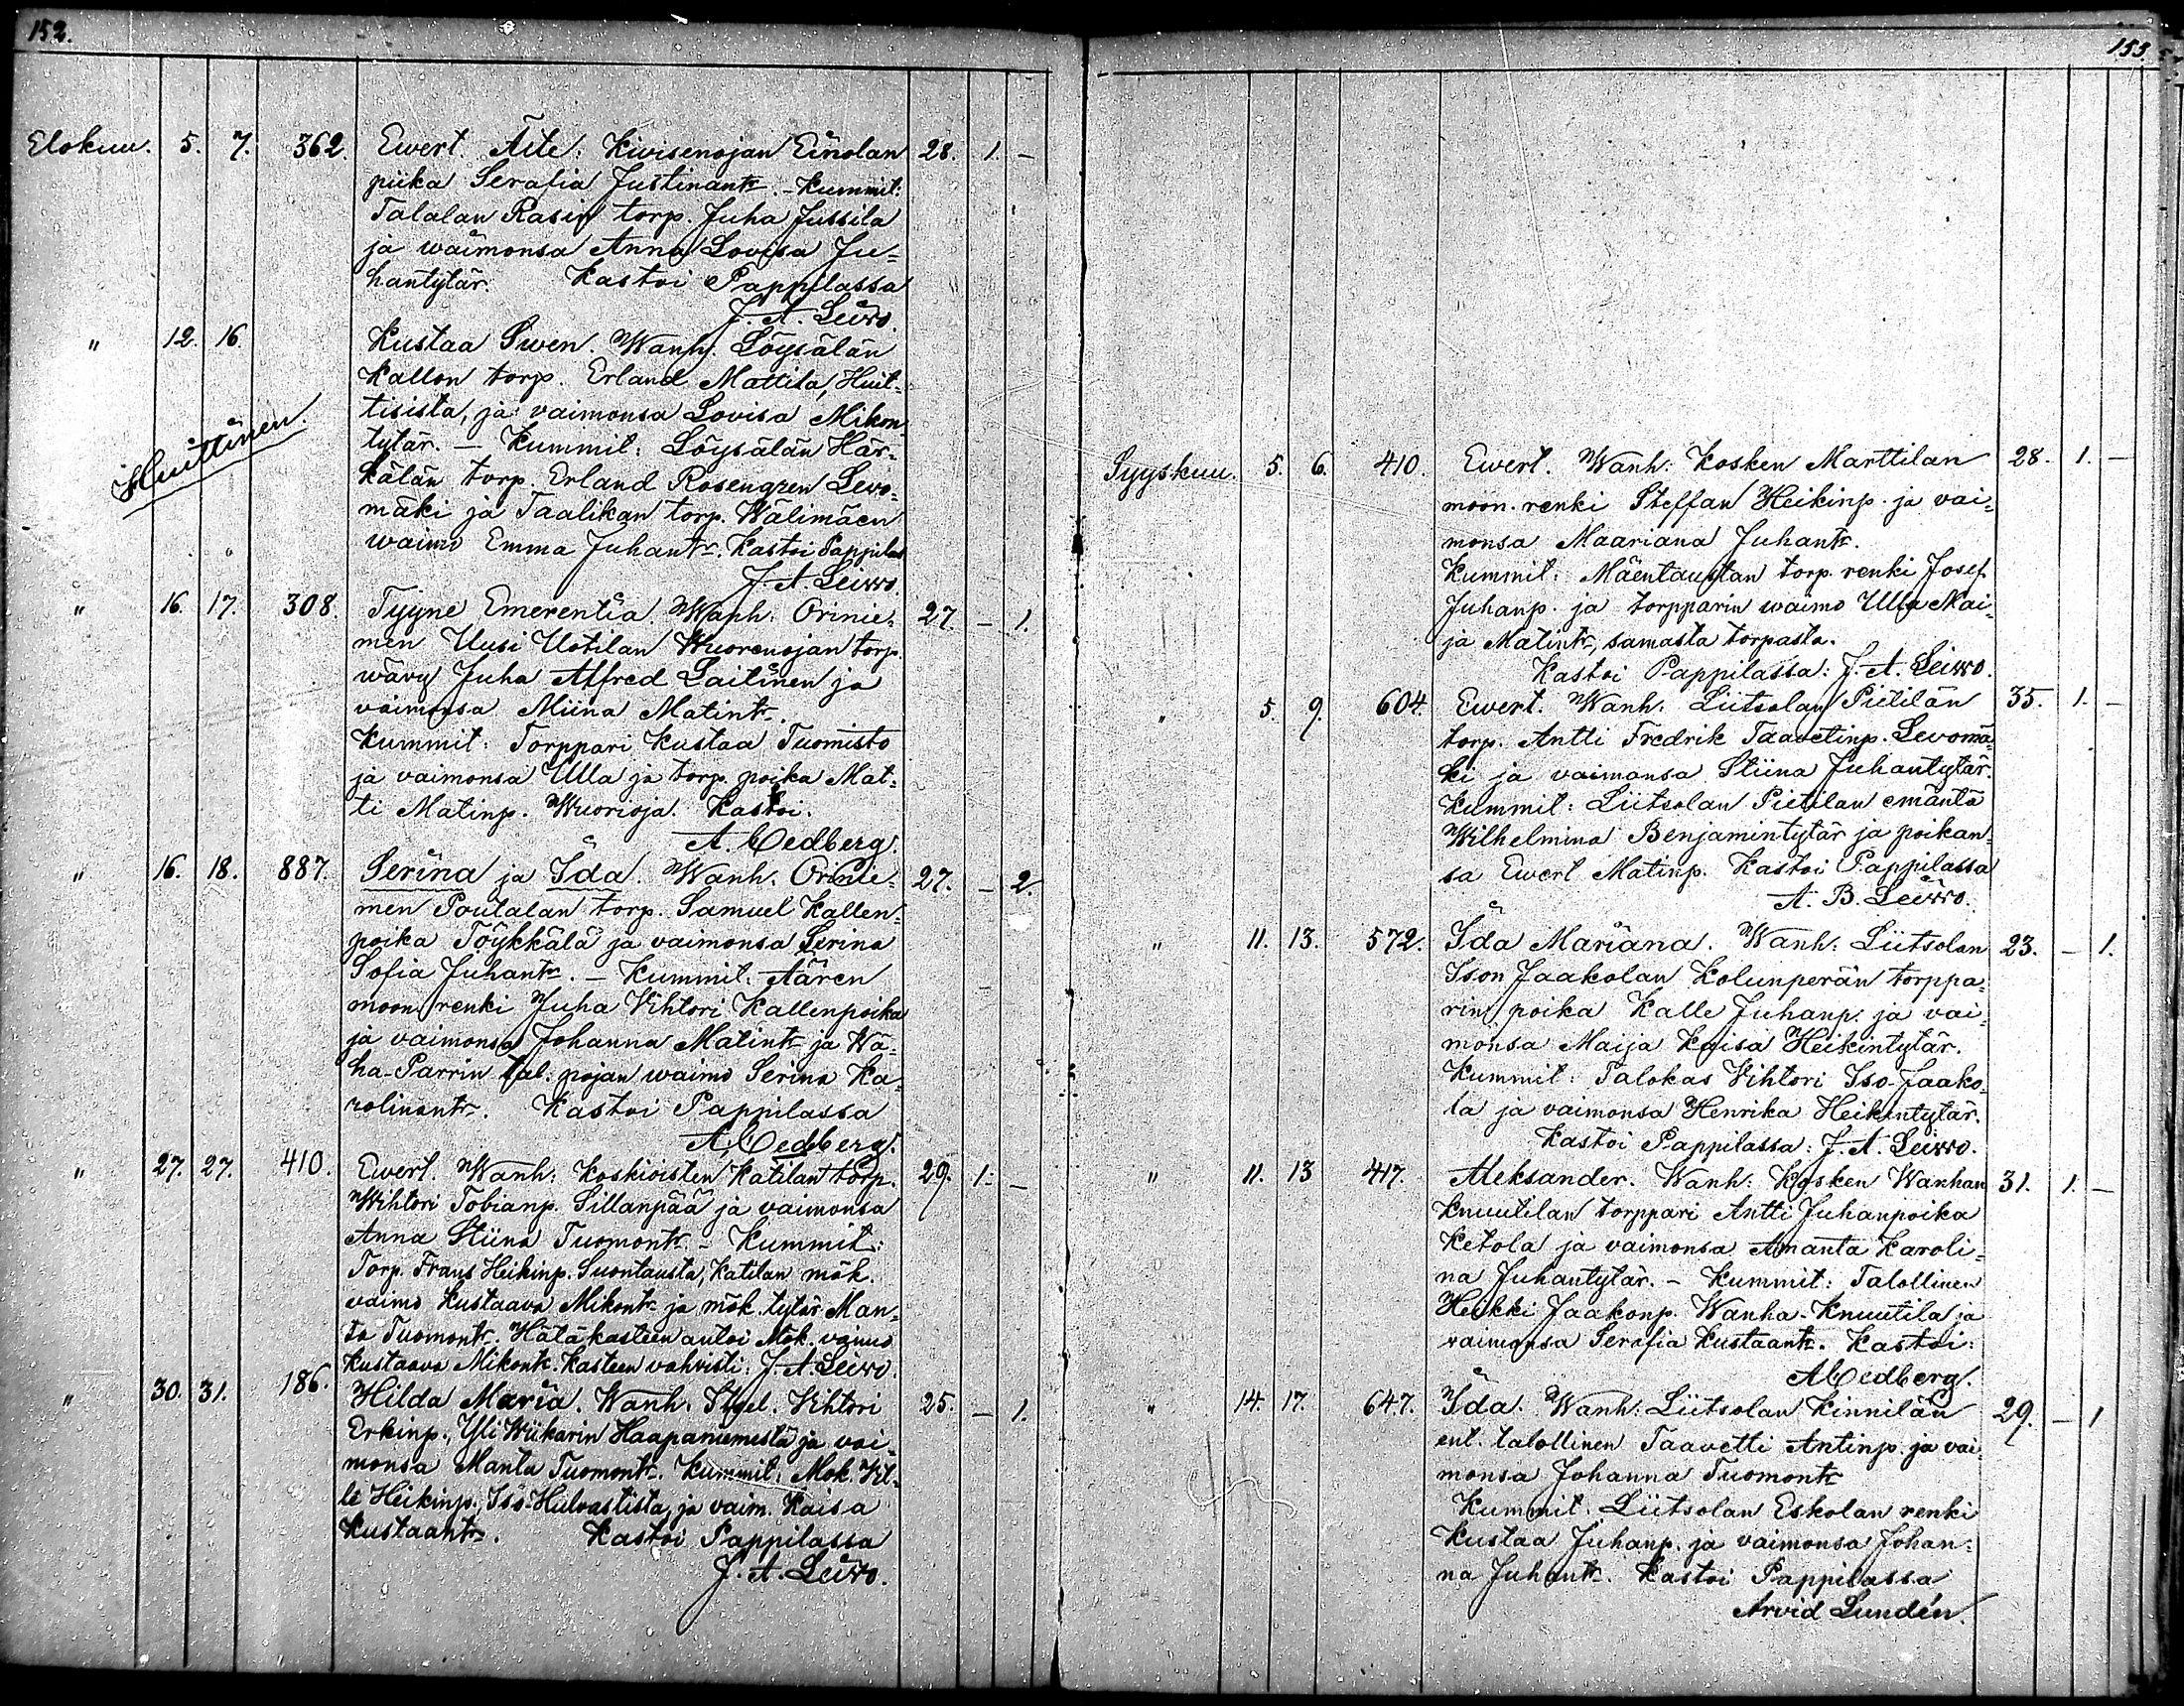 152.
Elokuu. 5. 7. 362. Ewert. Äite: Kivisenojan Einolan 28. 1. –
piika Serafia Justinantr. – Kummit:
Talalan Rasin torp. Juha Jussila
ja waimonsa Anna Lovisa Ju=
hantytär. Kastoi Pappilassa
J. A. Leivo.
" 12. 16. Kustaa Swen. Wanh. Löysälän
Kallon torp. Erland Mattila, Huit=
tisista, ja vaimonsa Lovisa Mikon
Huittinen. tytär. – Kummit: Löysälän Här=
kälän torp. Erland Rosengren Levo=
mäki ja Taalikan torp. Wälimäen
waimo Emma Juhantr. Kastoi Pappilas
J. A. Leivo.
" 16. 17. 308. Tyyne Emerentia. Wanh: Orinie= 27. – 1.
men Uusi Uotilan Wuorenojan torp.
wävy Juha Alfred Laitinen ja
vaimonsa Miina Matintr.
Kummit: Torppari Kustaa Tuomisto
ja vaimonsa Ulla ja torp. poika Mat=
ti Matinp. Wuorioja. Kastoi.
A. Cedberg.
" 16. 18. 887. Serina ja Ida. Wanh. Orinie= 27. – 2.
men Poutalan torp. Samuel Kallen=
poika Töykkälä ja vaimonsa Serina
Sofia Juhantr. – Kummit: Äären
moon. renki Juha Vihtori Kallenpoika
ja vaimonsa Johanna Matintr ja Wä=
hä-Parrin tal. pojan waimo Serina Ka=
rolinantr. Kastoi Pappilassa
A. Cedberg.
" 27. 27. 410. Ewert. Wanh: Koskioisten Katilan torp. 29. 1. –
Wihtori Tobianp. Sillanpää ja vaimonsa
Anna Stiina Tuomontr. – Kummit:
Torp. Frans Heikinp. Suontausta, Katilan mök.
vaimo Kustaava Mikontr ja mök. tytär Man=
ta Tuomontr. Hätäkasteen antoi Mök. vaimo
Kustaava Mikontr. Kasteen vahvisti: J. A. Leivo.
" 30. 31. 186. Hilda Maria. Wanh. Vihtori 25. – 1.
Erkinp., Yli Wiikarin Haapaniemestä ja vai=
monsa Manta Tuomontr. Kummit: Mök. Vil=
le Heikinp. Iso-Hulvastista, ja vaim. Kaisa
Kustaantr. Kastoi Pappilassa
J. A. Leivo.
153.
Syyskuu. 5. 6. 410. Ewert. Wanh: Kosken Marttilan 28. 1. –
moon. renki Steffan Heikinp. ja vai=
monsa Maariana Juhantr.
Kummit: Mäentaustan torp. renki Josef
Juhanp. ja torpparin waimo Ulla Mai=
ja Matintr, samasta torpasta.
Kastoi Pappilassa: J. A. Leivo.
" 5. 9. 604. Ewert. Wanh: Liitsolan Pietilän 35. 1. –
torp. Antti Fredrik Taavetinp. Levomä=
ki ja vaimonsa Stiina Juhantytär.
Kummit: Liitsolan Pietilan emäntä
Wilhelmina Benjamintytär ja poikan=
sa Ewert Matinp. Kastoi Pappilassa
A. B. Leivo.
" 11. 13. 572. Ida Mariana. Wanh: Liitsolan 23. – 1.
Ison Jaakolan Kolunperän torppa=
rin poika Kalle Juhanp. ja vai=
monsa Maija Kaisa Heikintytär.
Kummit: Talokas Vihtori Iso-Jaako=
la ja vaimonsa Henrika Heikintytär.
Kastoi Pappilassa: J. A. Leivo.
" 11. 13 417. Aleksander. Wanh: Kosken Wanhan 31. 1. –
Knuutilan torppari Antti Juhanpoika
Ketola ja vaimonsa Amanta Karoli=
na Juhantytär. – Kummit: Talollinen
Heikki Jaakonp. Wanha-Knuutila ja
vaimonsa Serafia Kustaantr. Kastoi:
A Cedberg.
" 14. 17. 647. Ida. Wanh: Liitsolan Kinnilän 29. – 1
ent. talollinen Taavetti Antinp. ja vai=
monsa Johanna Tuomontr
Kummit. Liitsolan Eskolan renki
Kustaa Juhanp. ja vaimonsa Johan=
na Juhantr. Kastoi Pappilassa
Arvid Lundén.